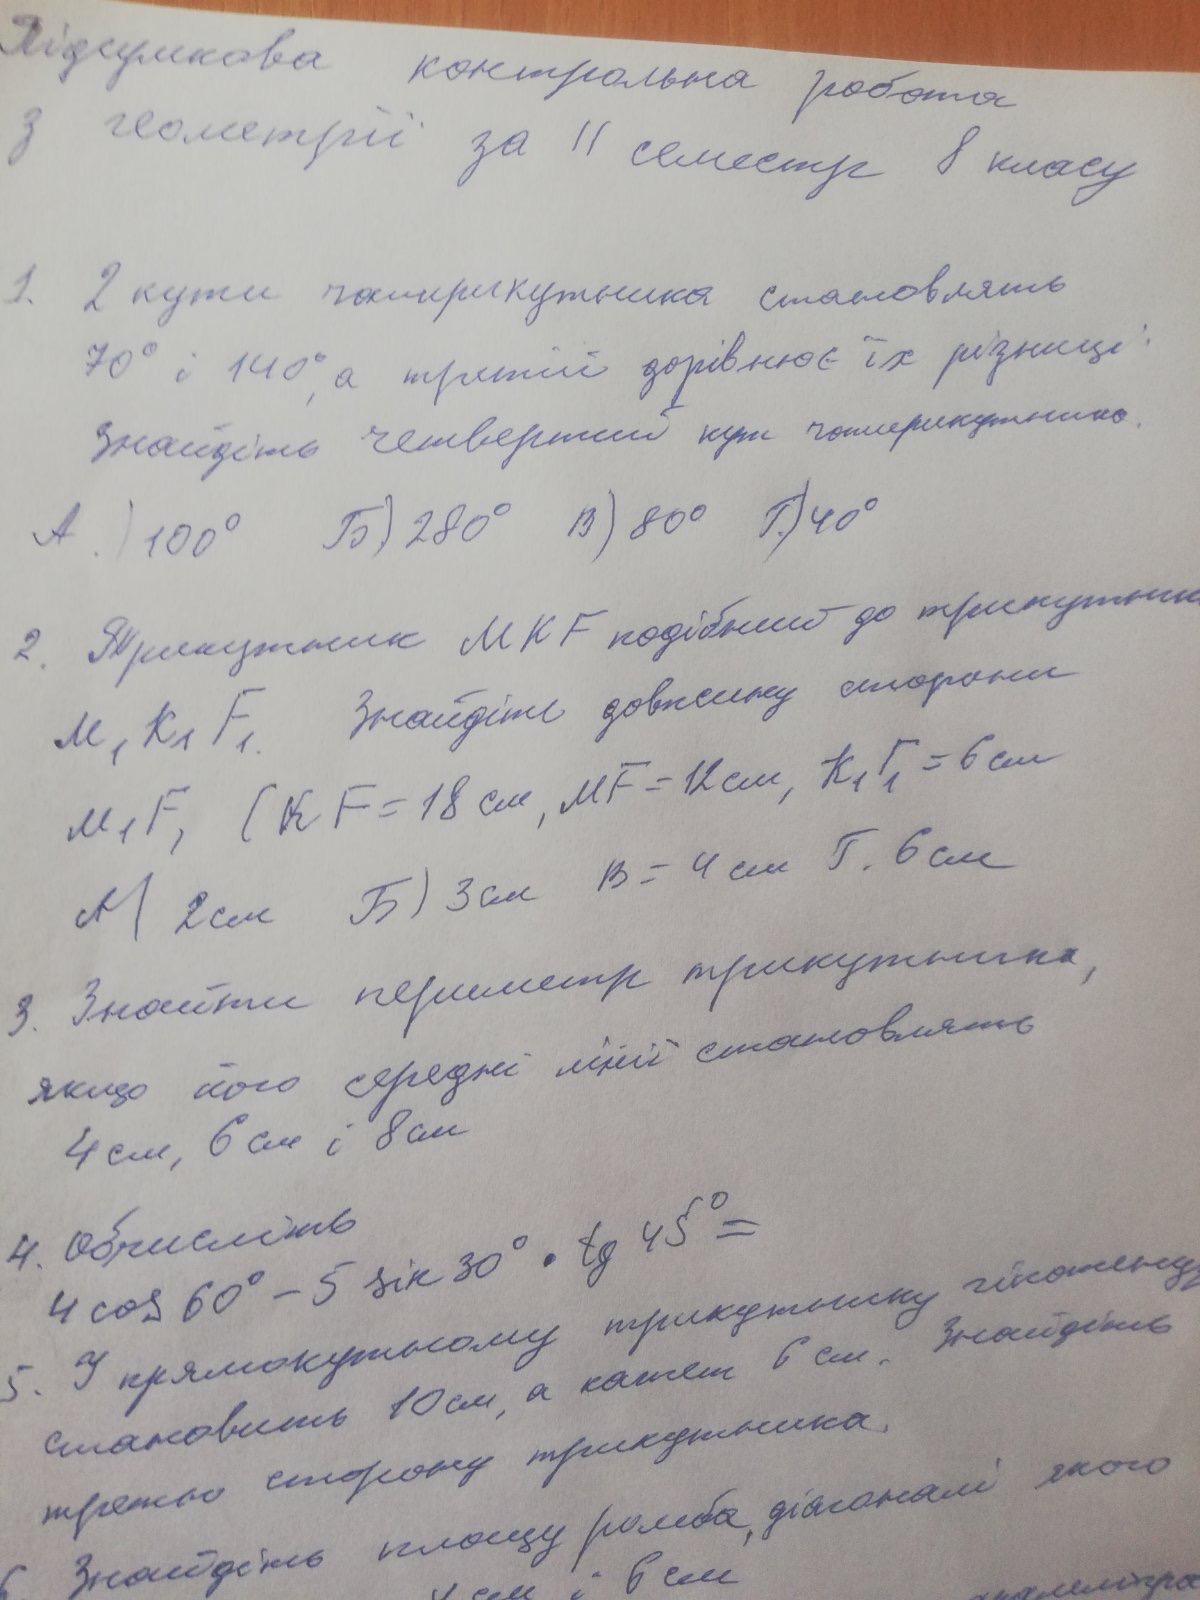 Підсумкова контрольна робота
з геометрії за II семестр 8 класу
1. 2 кути чотирикутника становлять
70° і 140°, а третій дорівнює їх різниці.
Знайдіть четвертий кут чотирикутника.
А.) 100° Б) 280° В) 80° Г.) 40°
2. Трикутник MKF подібний до трикутник
M₁K₁F₁. Знайдіть довжину сторони
M₁F₁ (KF = 18 см, MF = 12 см, K₁F₁ = 6 см
А) 2 см Б) 3 см В = 4 см Г. 6 см
3. Знайти периметр трикутника,
якщо його середні лінії становлять
4 см, 6 см і 8 см
4. Обчисліть
4 cos 60° - 5 sin 30° · tg 45° =
5. У прямокутному трикутнику гіпотенуз
становить 10 см, а катет 6 см. Знайдіть
третю сторону трикутника.
6. Знайдіть площу ромба, діагоналі якого
4 см і 6 см